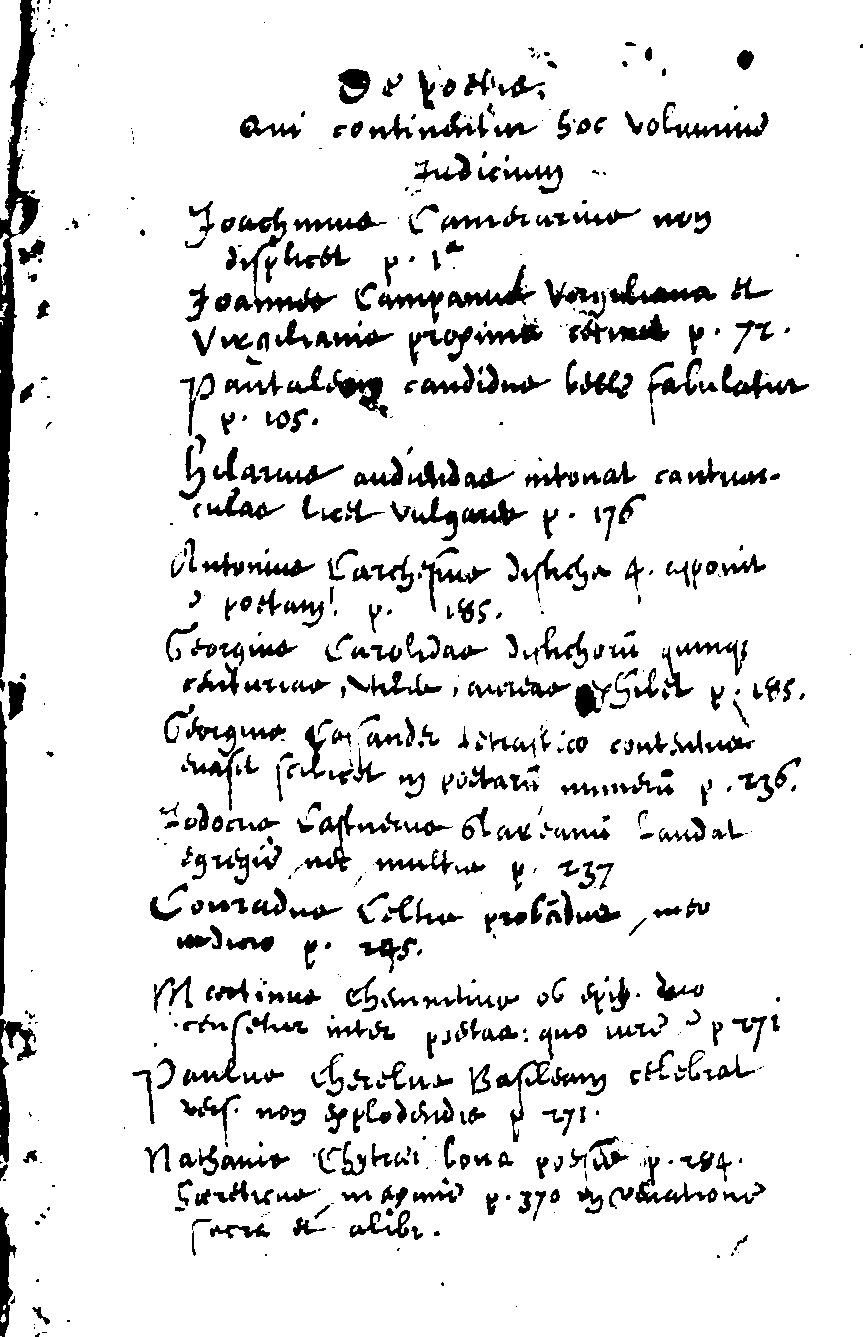 De poetis,
Qui continentur hoc volumine
Iudicium
Joachimus Camerarius non
displicet p. 1ᵃ
Joannes Campanus Vergiliana et
Virgilianis proxima p. 72.
Pantaleon candidus belle fabulatur
p. 105.
Hilarius audiendas intonat cantiun-
culas licet vulgares p. 176
Antonius disticha 4. apponit
poetam! p. 185.
Georgius Carolides distichorū quinq
centurias, utiles, aureas exhibet p. 185.
Georgius Cassander tetrastico contentus
evasit scilicet in poetarū numerū p. 236.
Jodocus Castnerus Glareanū laudat
egregie, nec multis p. 237
Conradus Celtis probādus, meo
iudicio p. 245.
Martinus Chemnitius ob epig. duo
censetur inter poetas: quo iure p 271
Paulus Cherelus Basileam celebrat
vers. non explodendis p 271.
Nathanis Chytrei bona poesis p. 284.
haereticus, maxime p. 370 in
sacra et alibi.